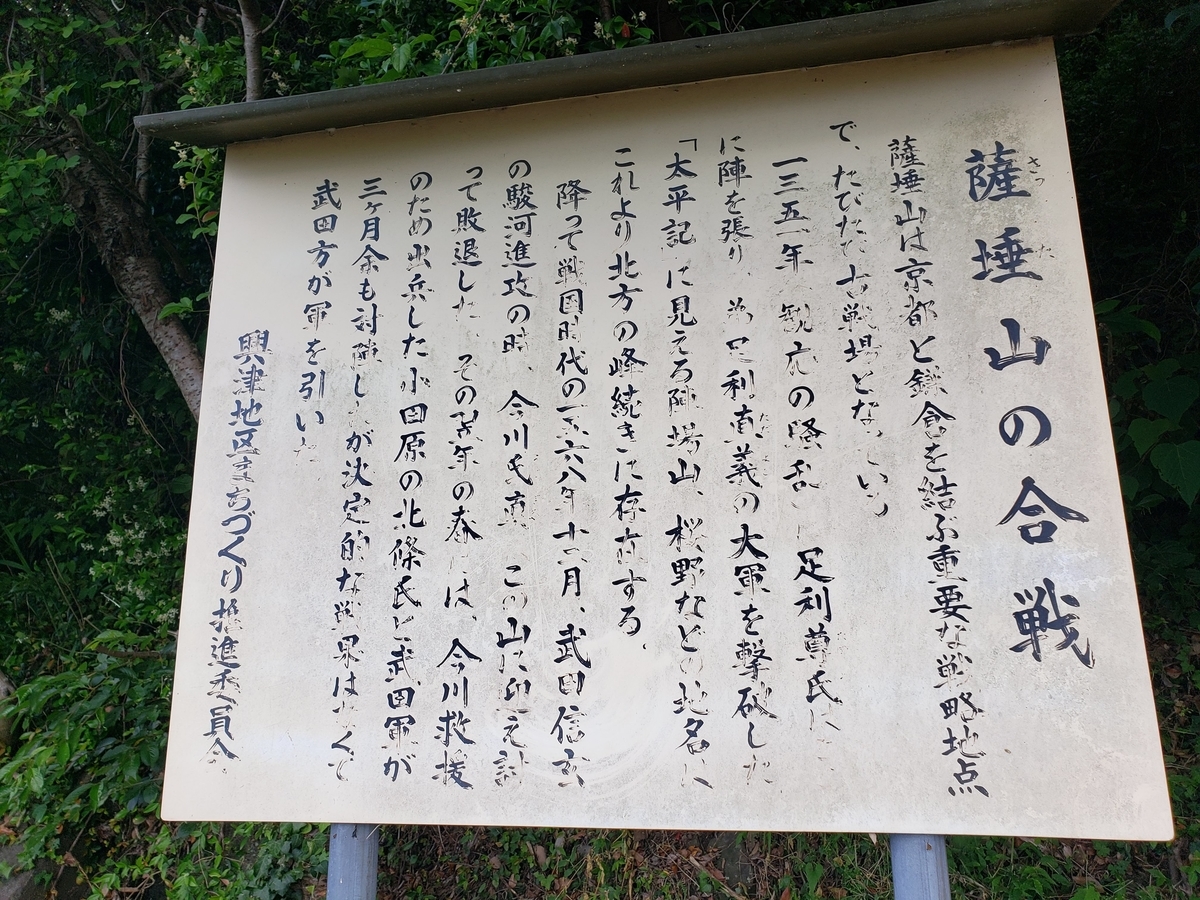 薩埵山の合戦
さっ た
薩埵山は京都と鎌倉を結ぶ重要な戦略地点
で、たびたび古戦場となっ
一三五一年 観応の騒乱 足利尊氏
に陣を張り、 足利直義の大軍を撃破した
「太平記 に見える陣場山、桜野などの地名は
これより北方の峰続きに存在する。
降って戦国時代の一五六八年十二月、武田信玄
の駿河進攻の時、今川氏真 この山に 討
って敗退した その翌年の春には、今川救援
のため出兵した小田原の北條氏と武田軍が
三ヶ月余も対陣したが決定的な戦果はなくて
武田方が軍を引いた
興津地区まちづくり推進委員会